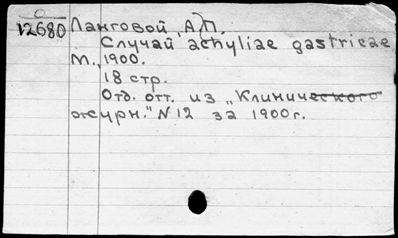 О
12680 Ланговой, А.П.
Случай achyliae gastricae
М., 1900.
18 стр.
Отд. отт. из „Клинического
журн." N 12 за 1900г.